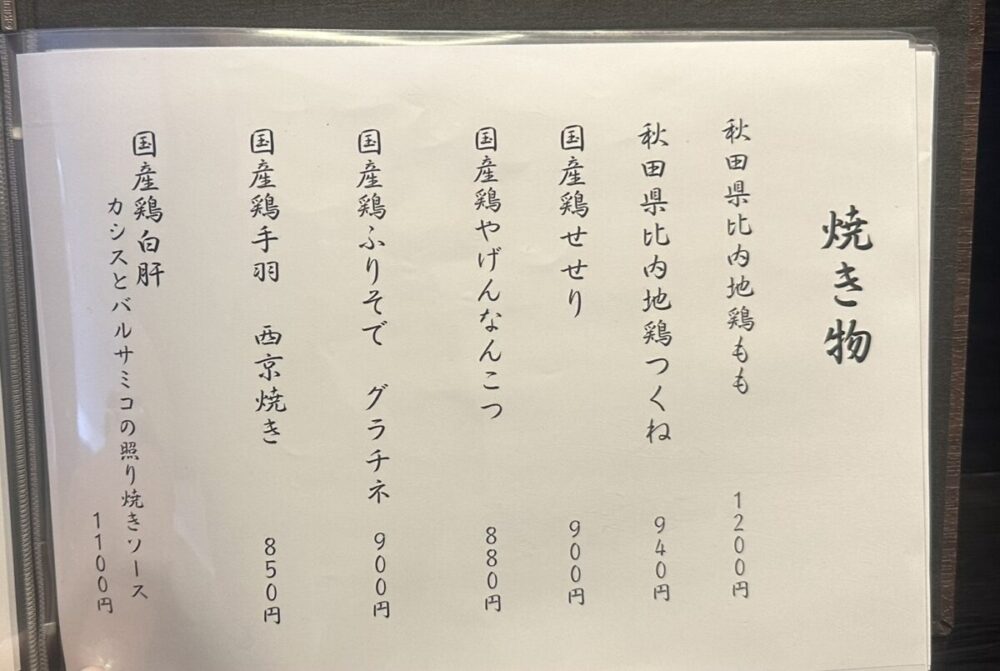 焼き物
秋田県比内地鶏もも 1200円
秋田県比内地鶏つくね 940円
国産鶏せせり 900円
国産鶏やげんなんこつ 880円
国産鶏ふりそで グラチネ 900円
国産鶏手羽 西京焼き 850円
国産鶏白肝
カシスとバルサミコの照り焼きソース
1100円